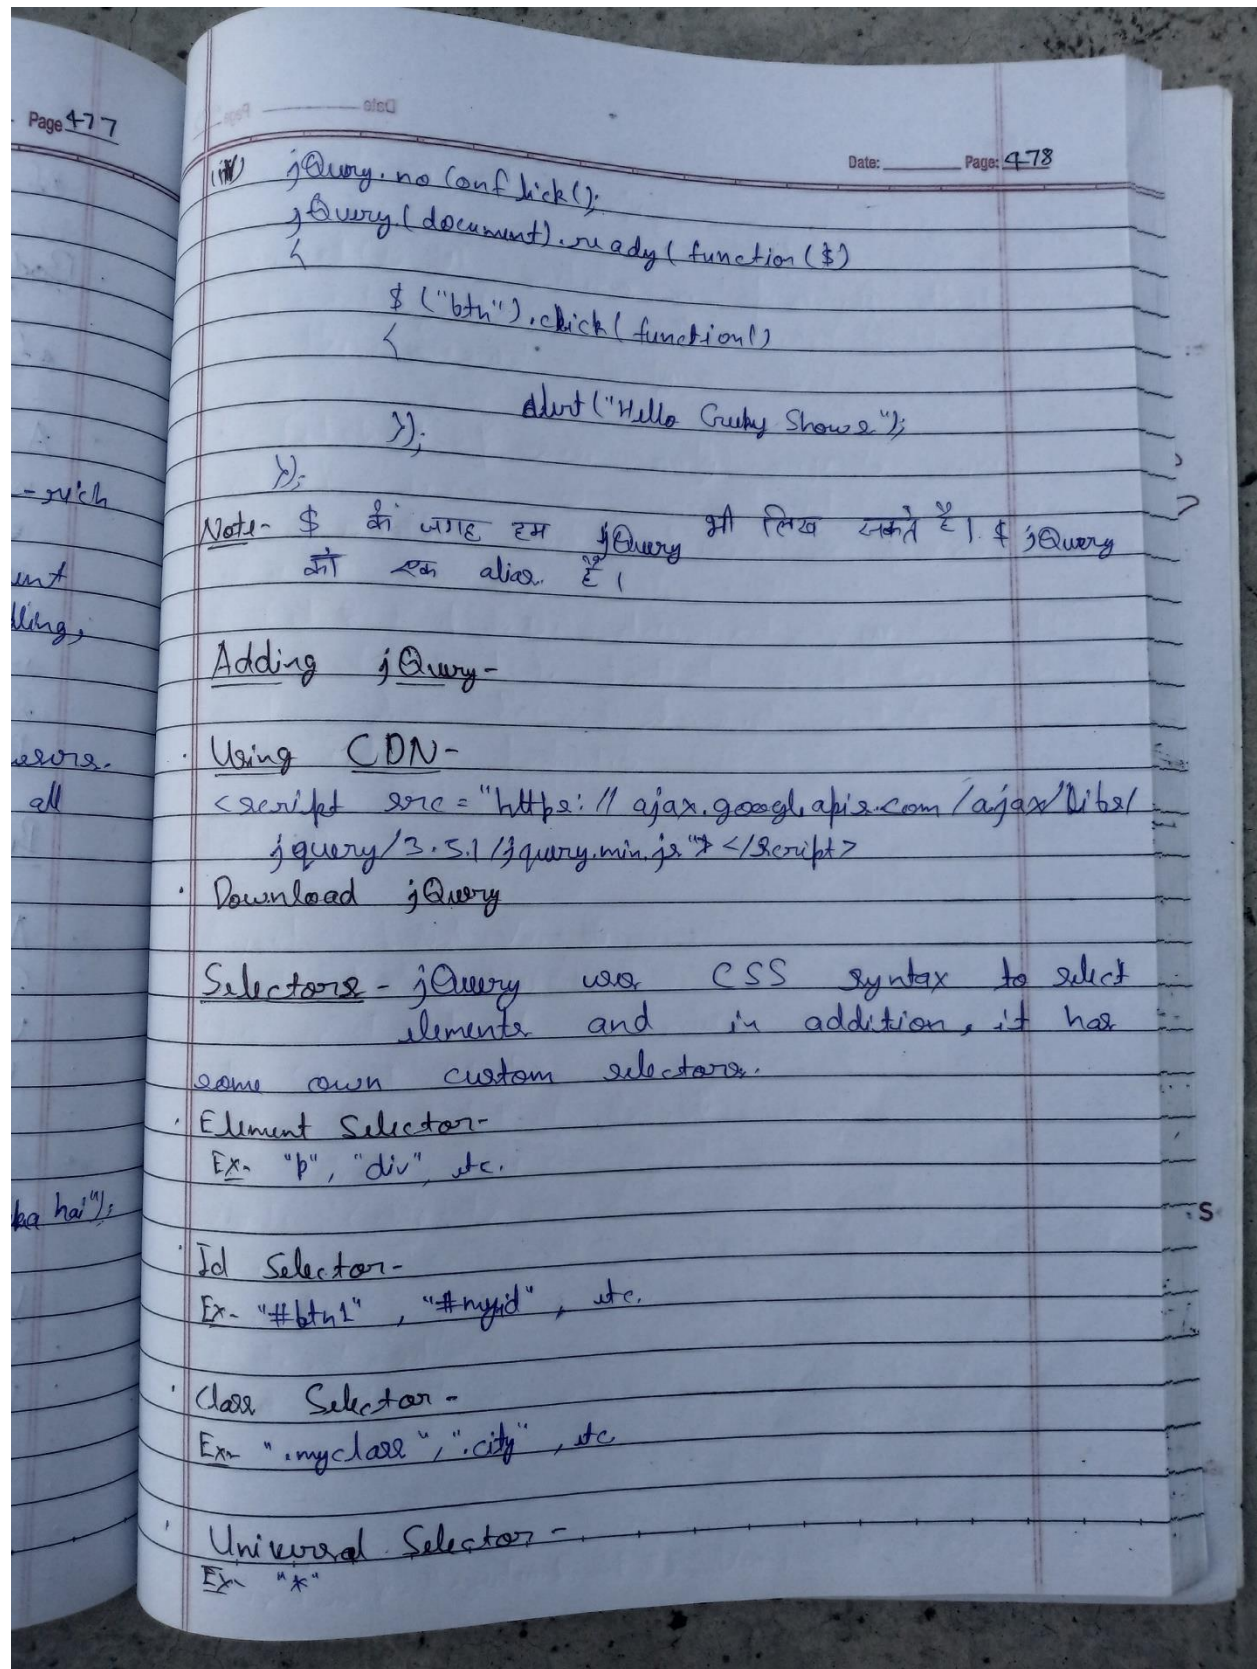 Page 477
- rich
ent
lling,
all
ka hai");
Date: Page: 478
jQuery.noConflick();
jQuery(document).ready(function($)
{
$("btn").click(function()
{
Alert("Hello Geeky Shows");
});
});
Note- $ के जगह हम jQuery भी लिख सकते है। $ jQuery
को एक alias है।
Adding jQuery-
· Using CDN-
<script src="https://ajax.googleapis.com/ajax/libs/
jquery/3.5.1/jquery.min.js"></script>
· Download jQuery
Selectors - jQuery use CSS syntax to select
elements and in addition, it has
some own custom selectors.
· Element Selector-
Ex- "p", "div", etc.
· Id Selector-
Ex- "#btn1", "#myid", etc.
· Class Selector-
Ex- ".myclass", ".city", etc
· Universal Selector-
Ex- "*"